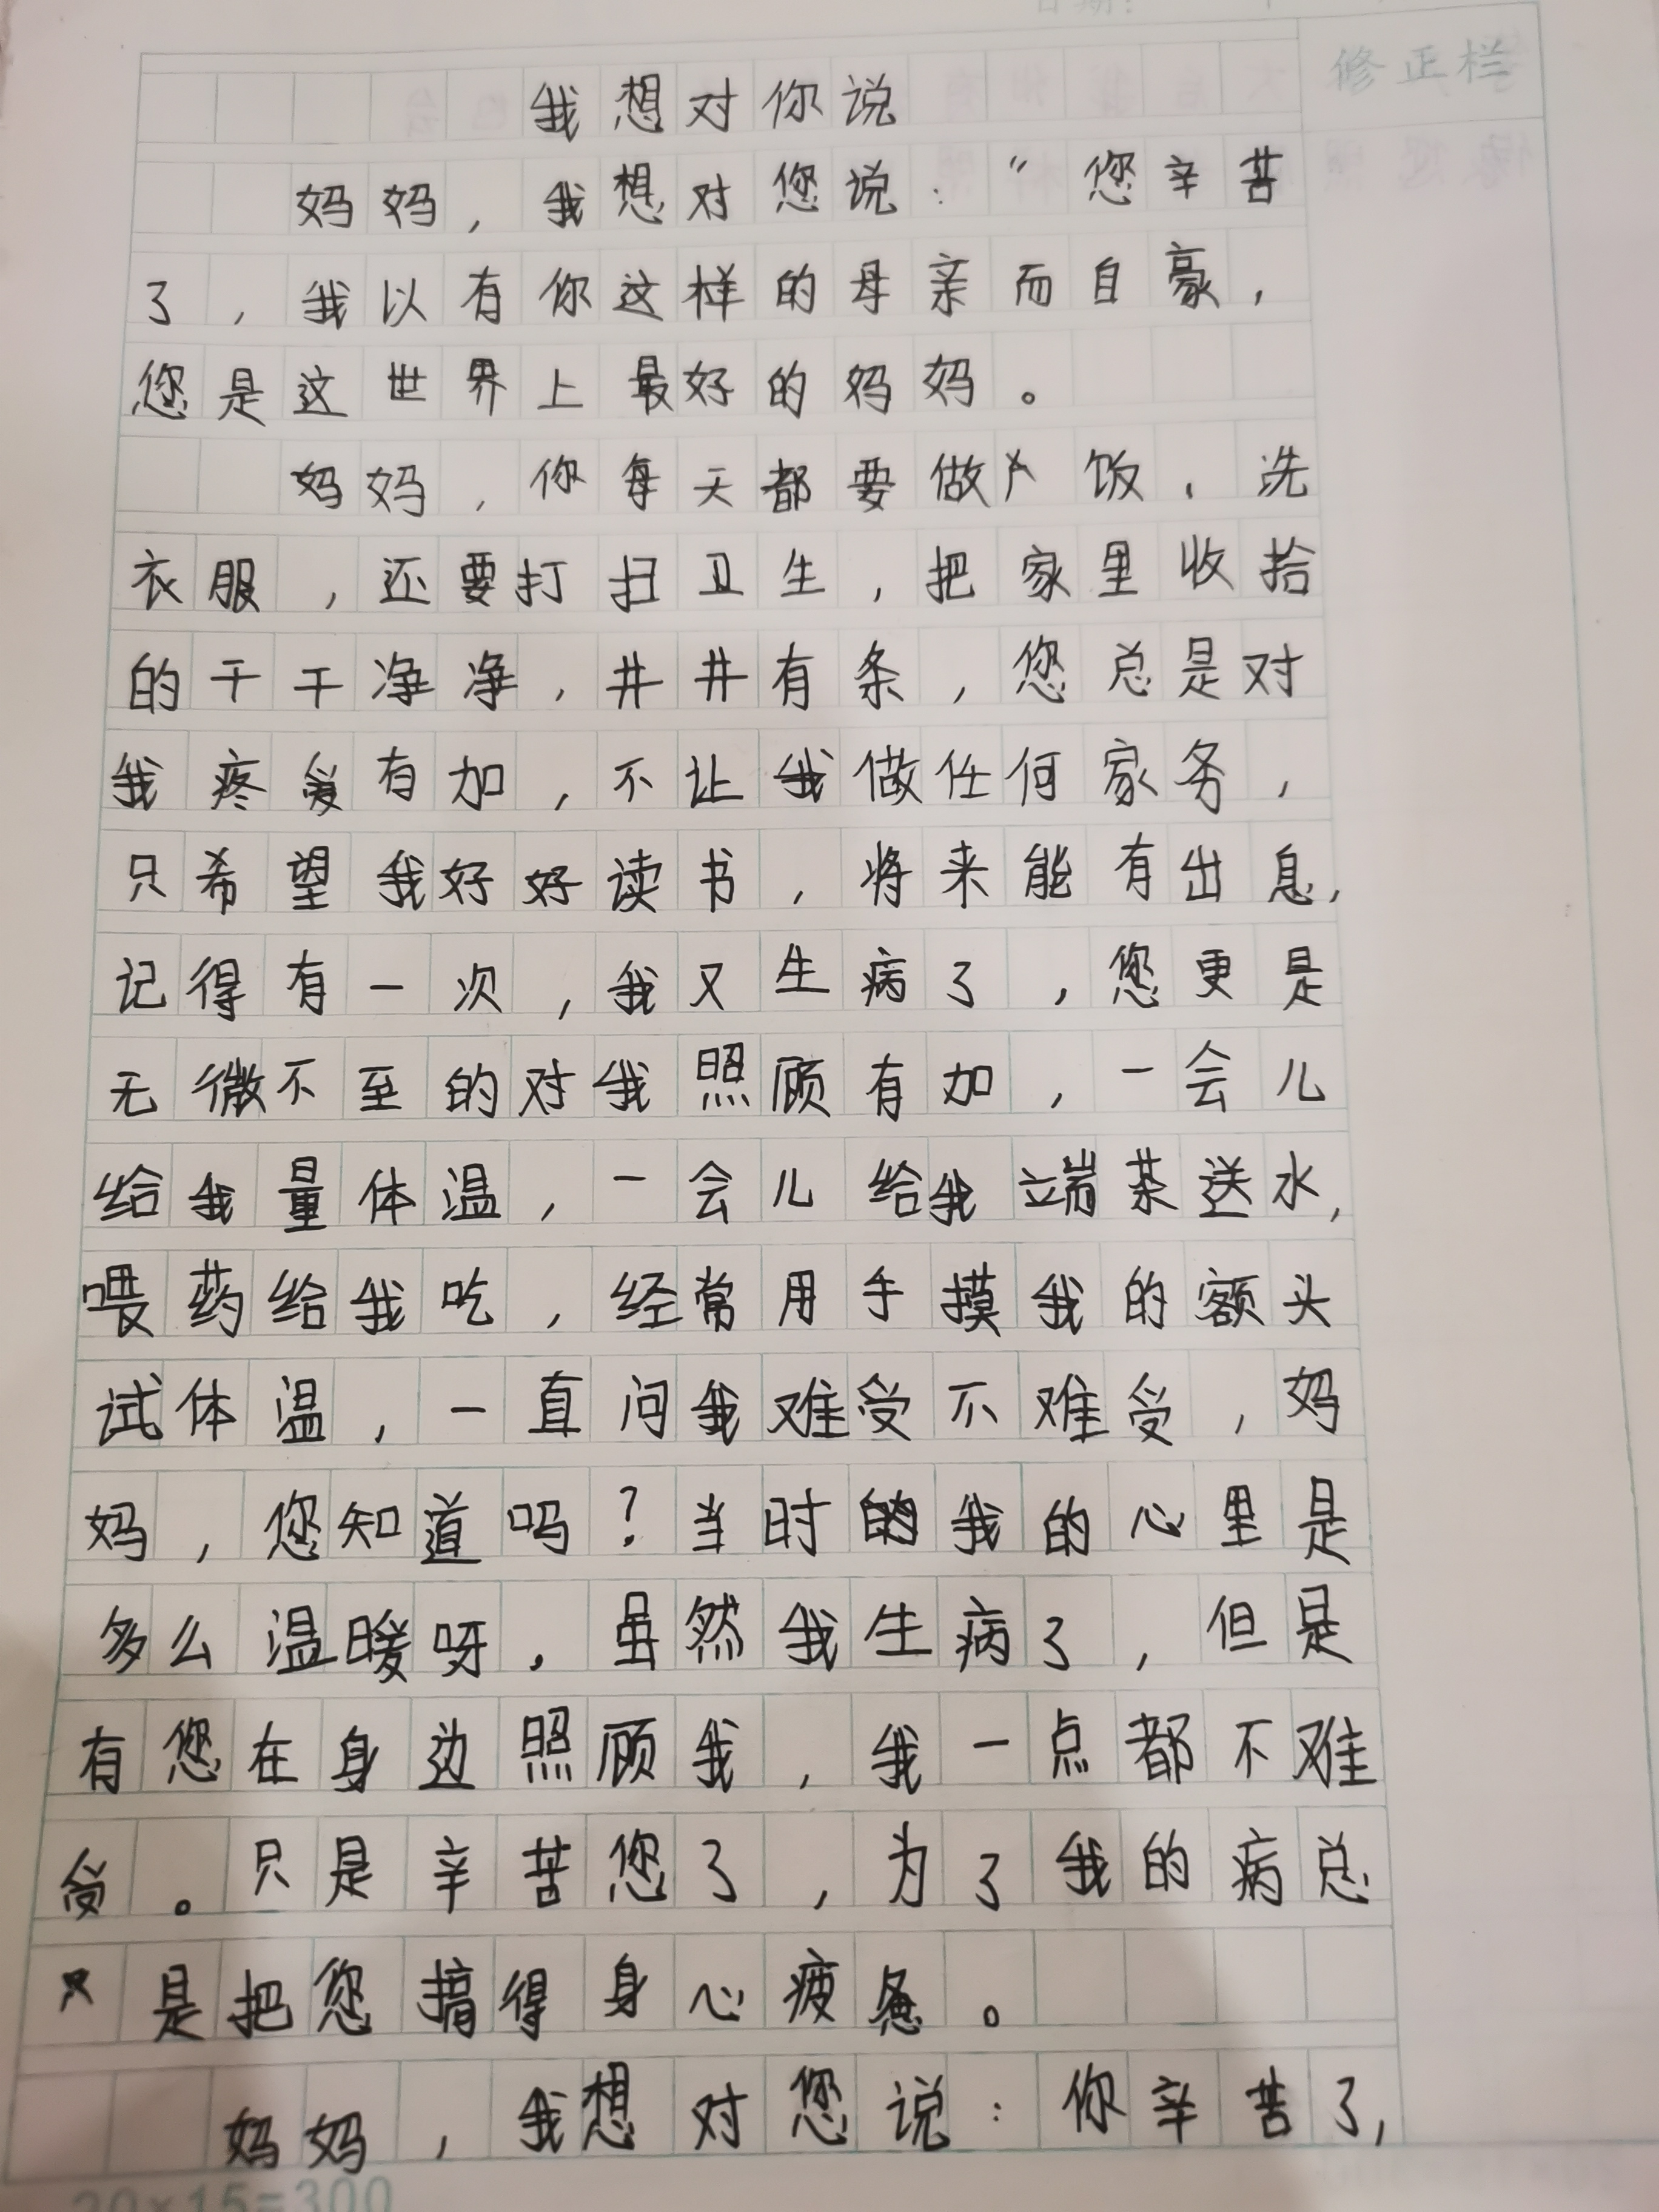 日期:
修正栏
我想对你说
妈妈,我想对您说:“您辛苦
了,我以有你这样的母亲而自豪,
您是这世界上最好的妈妈。
妈妈,你每天都要做饭,洗
衣服,还要打扫卫生,把家里收拾
的干干净净,井井有条,您总是对
我疼爱有加,不让我做任何家务,
只希望我好好读书,将来能有出息,
记得有一次,我又生病了,您更是
无微不至的对我照顾有加,一会儿
给我量体温,一会儿给我端茶送水,
喂药给我吃,经常用手摸我的额头
试体温,一直问我难受不难受,妈
妈,您知道吗?当时的我的心里是
多么温暖呀,虽然我生病了,但是
有您在身边照顾我,我一点都不难
受。只是辛苦您了,为了我的病总
是把您搞得身心疲惫。
妈妈,我想对您说:你辛苦了,
20×15=300